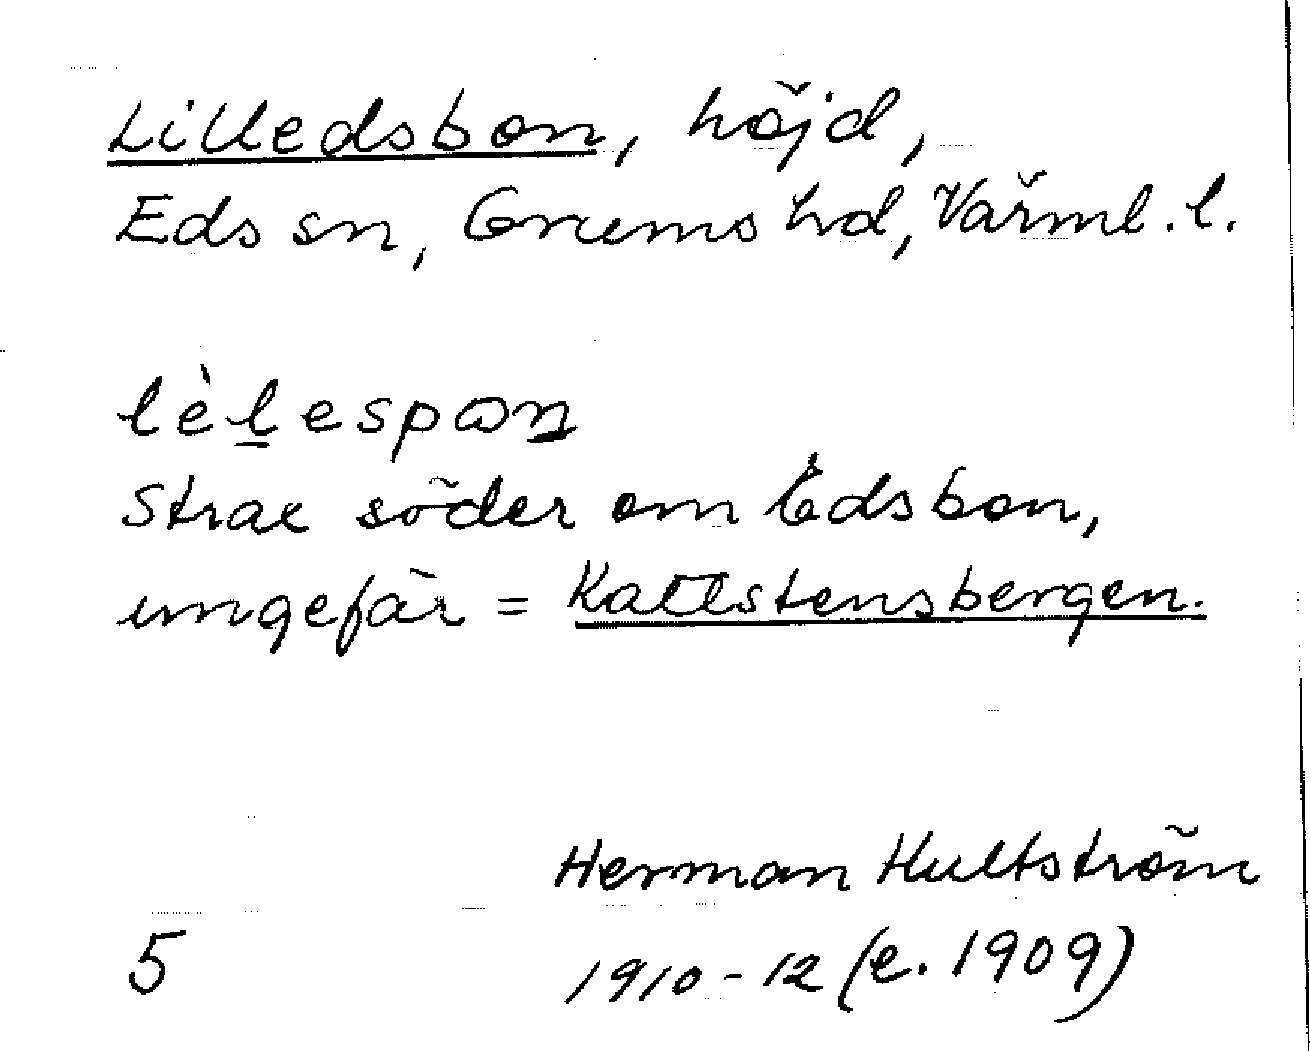 Lilledsbon, höjd,
Eds sn, Grums hd, Värml. l.
lèḻespɷn
Strax söder om Edsbon,
ungefär = Kattstensbergen.
Herman Hultström
5 1910-12 (e. 1909)